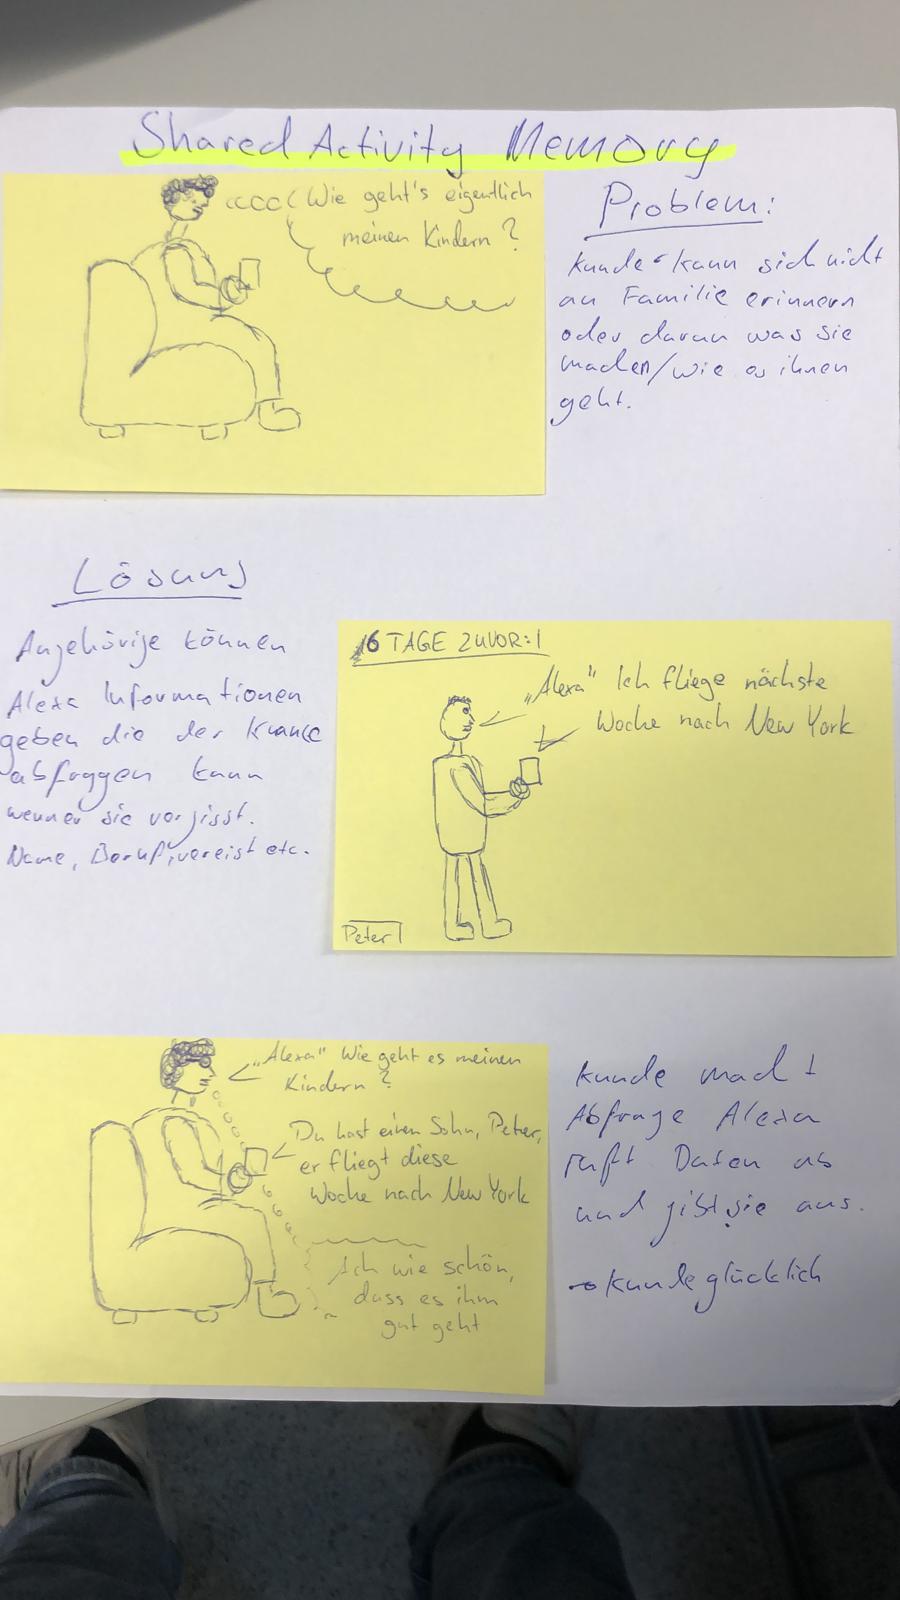 Shared Activity Memory
Wie geht's eigentlich
meinen Kindern?
Problem:
Kunde kann sich nicht
an Familie erinnern
oder daran was sie
machen/wie es ihnen
geht.
Lösung
Angehörige können
Alexa Informationen
geben die der Kunde
abfraggen kann
wenn er sie vergisst.
Name, Beruf, vereist etc.
6 TAGE ZUVOR:
„Alexa" Ich fliege nächste
Woche nach New York
Peter
„Alexa" Wie geht es meinen
Kindern?
Du hast einen Sohn, Peter,
er fliegt diese
Woche nach New York
Ach wie schön,
dass es ihm
gut geht
Kunde macht
Abfrage Alexa
ruft Daten ab
und gibt sie aus.
→ Kunde glücklich